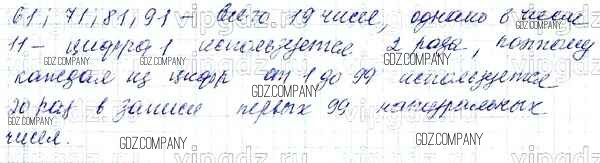 61; 71; 81; 91 – Всего 19 чисел, однако в числе
11 – цифра 1 используется 2 раза, поэтому
каждая из цифр от 1 до 99 используется
20 раз в записи первых 99 натуральных
чисел.
GDZ.COMPANY
GDZ.COMPANY
GDZ.COMPANY
GDZ.COMPANY
GDZ.COMPANY
GDZ.COMPANY